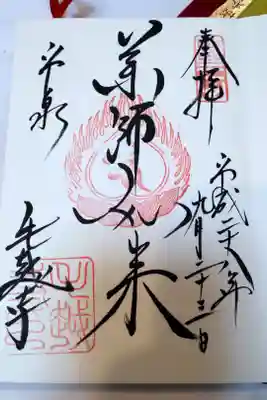 奉拝
平成二十八年
九月二十三日
薬師如来
平泉
毛越寺